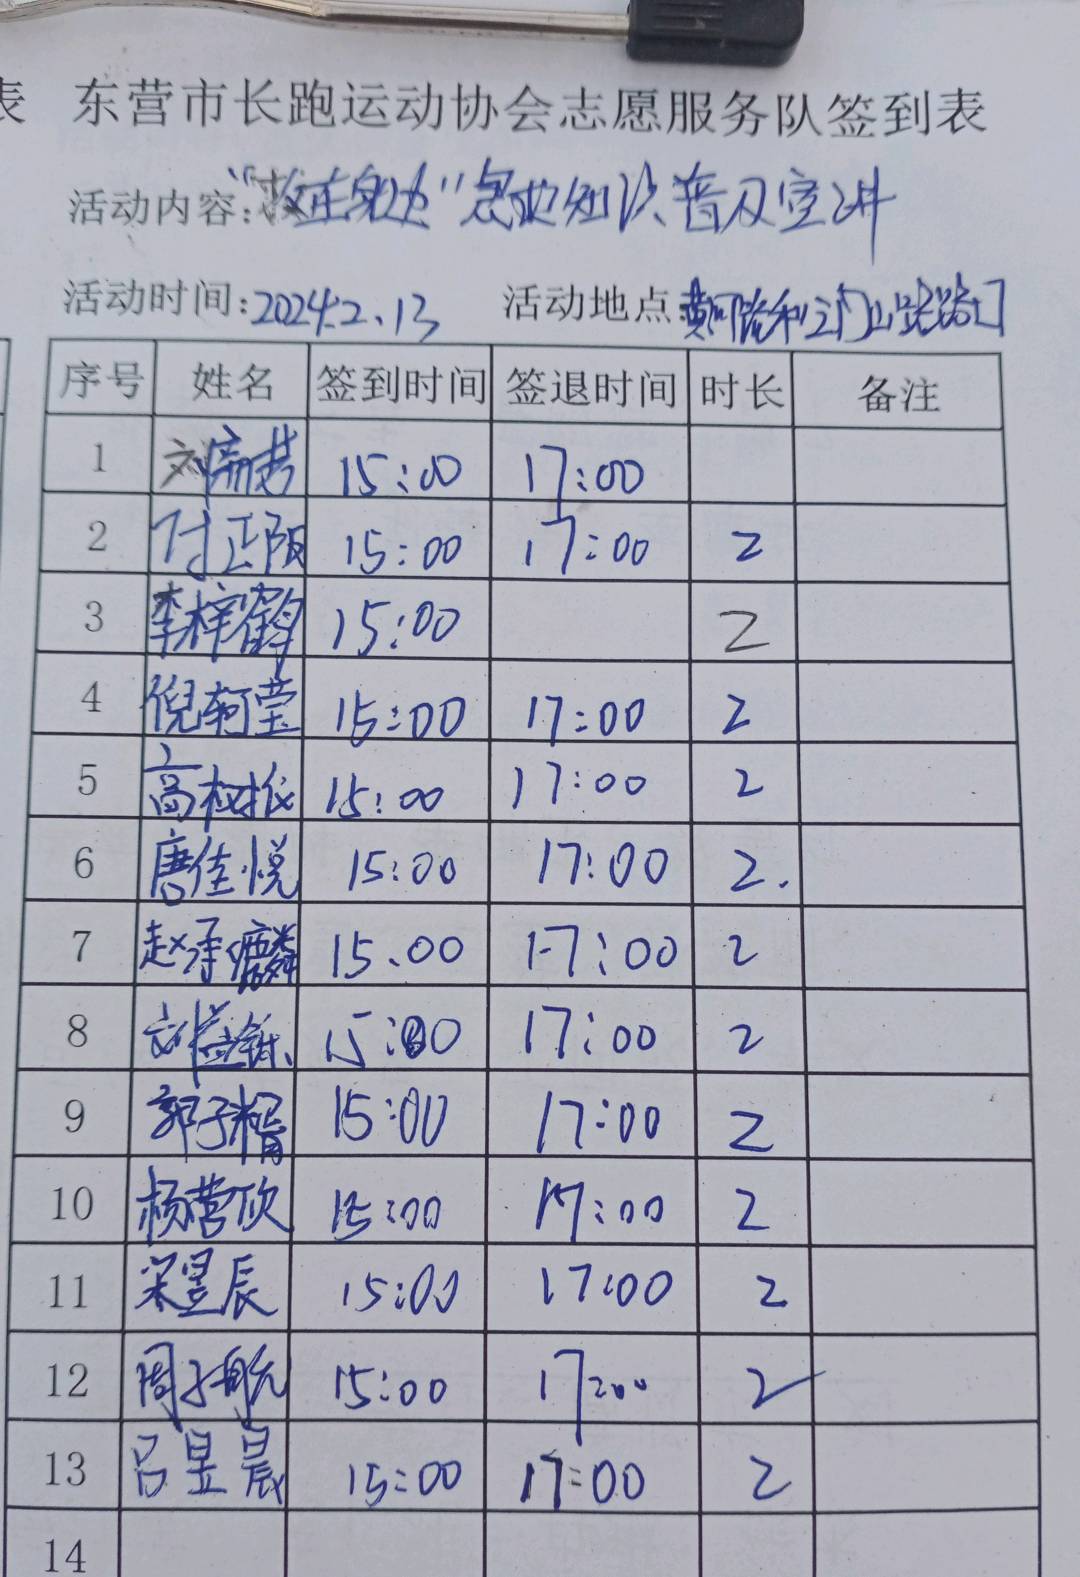 表 东营市长跑运动协会志愿服务队签到表
活动内容:"救在身边"急救知识普及宣讲
活动时间:2024.2.13 活动地点 黄河路和
序号 姓名 签到时间 签退时间 时长 备注
1 15:00 17:00
2 付正阪 15:00 17:00 2
3 李梓鹤 15:00 2
4 倪轲莹 15:00 17:00 2
5 高 15:00 17:00 2
6 唐佳悦 15:00 17:00 2.
7 赵承麟 15.00 17:00 2
8 刘 15:00 17:00 2
9 郭子 15:00 17:00 2
10 杨营欣 15:00 17:00 2
11 宋昱辰 15:00 17:00 2
12 周子航 15:00 17:00 2
13 吕昱晨 15:00 17:00 2
14